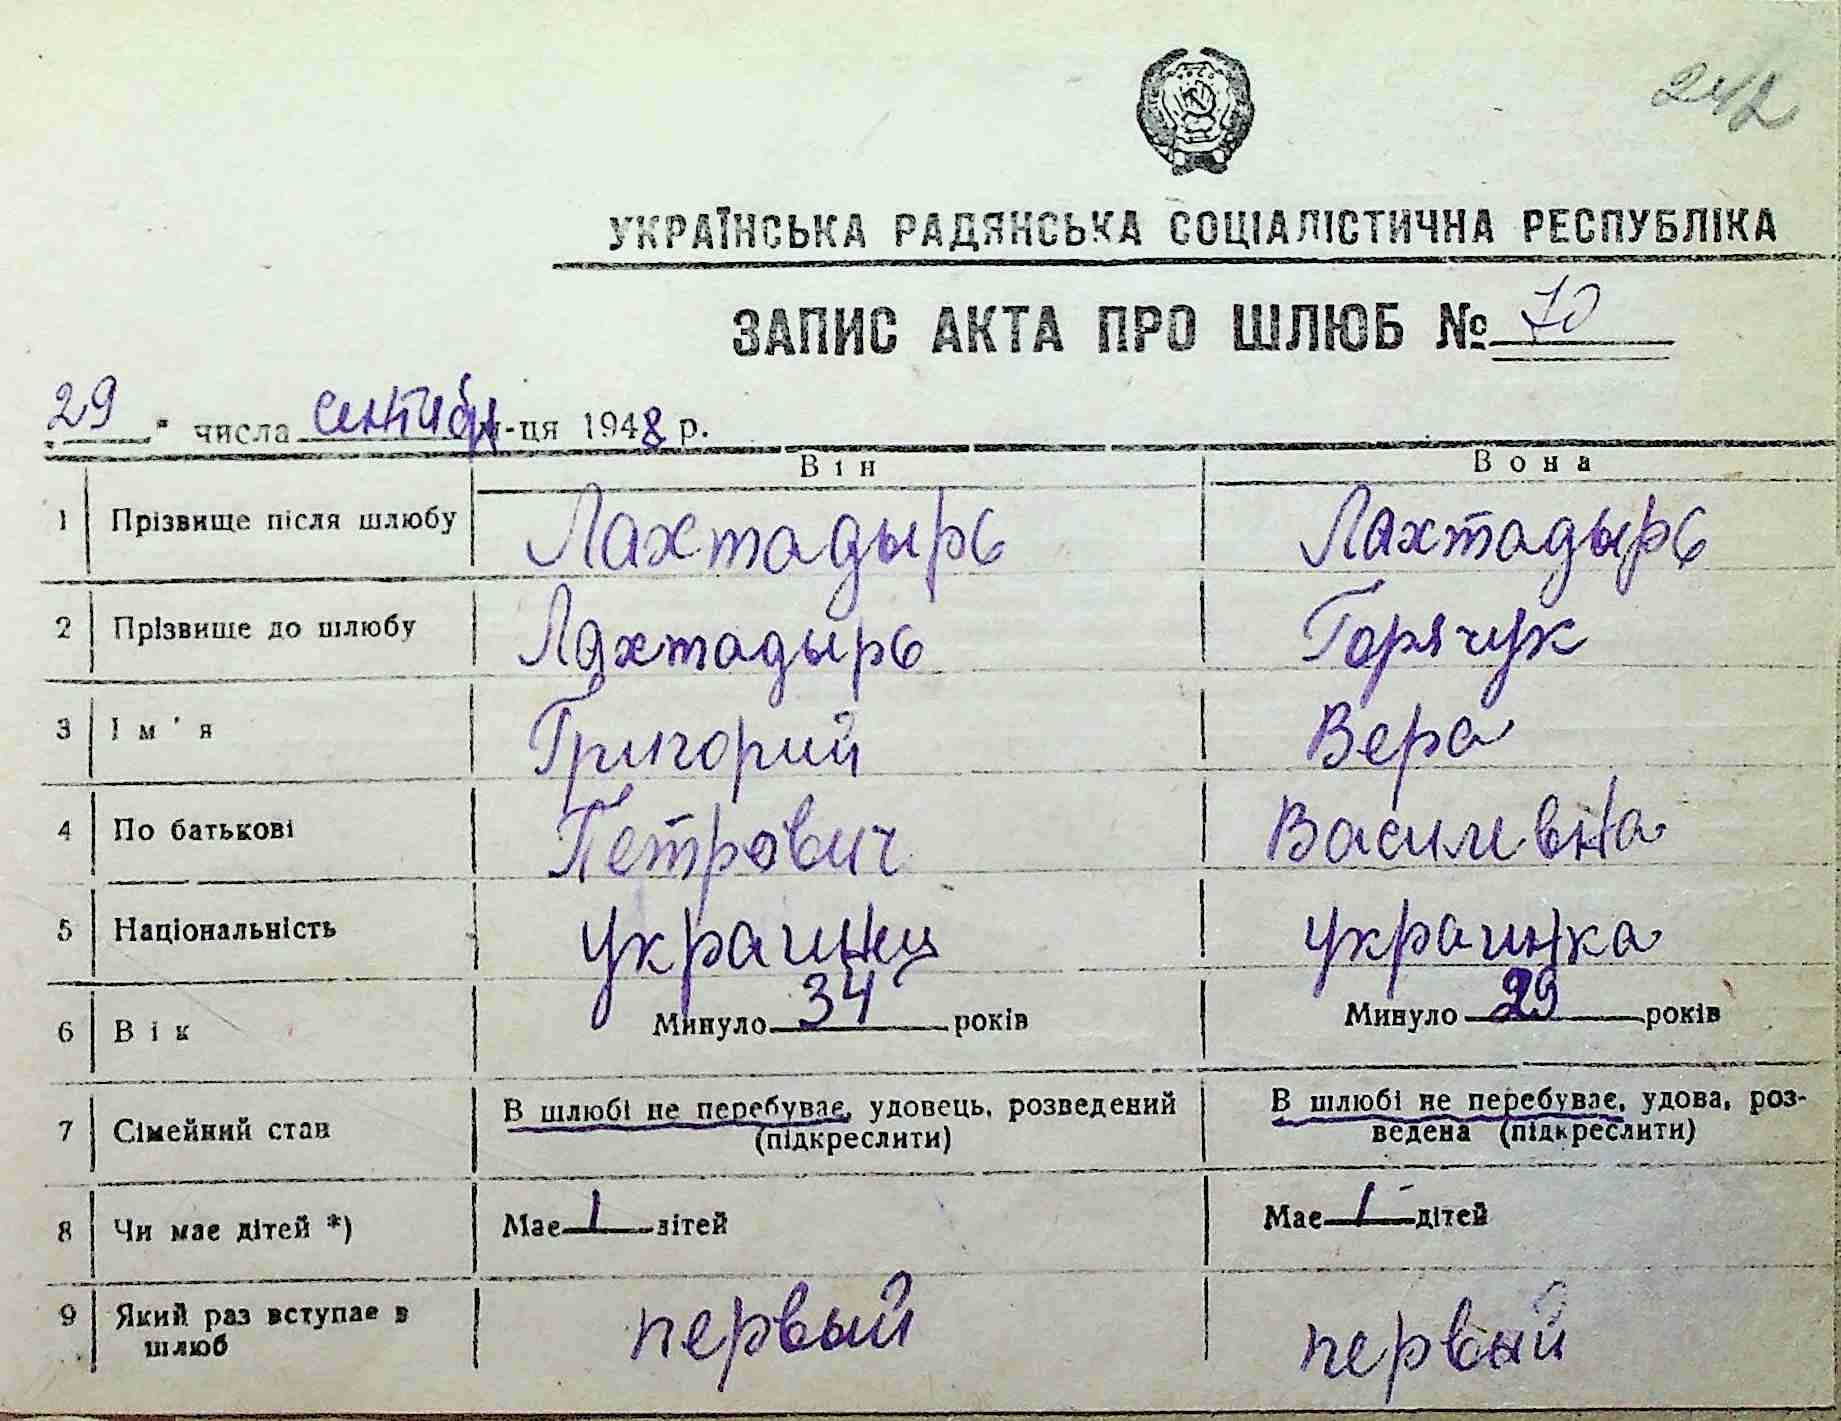 242
УКРАЇНСЬКА РАДЯНСЬКА СОЦІАЛІСТИЧНА РЕСПУБЛІКА
ЗАПИС АКТА ПРО ШЛЮБ № 70
„29" числа сентября м-ця 1948 р.
Він Вона
1 Прізвище після шлюбу Лахтадырь Лахтадырь
2 Прізвище до шлюбу Лахтадырь Горячук
3 Ім'я Григорий Вера
4 По батькові Петрович Василевна
5 Національність украинец украинка
6 Вік Минуло 34 років Минуло 29 років
7 Сімейний стан В шлюбі не перебуває, удовець, розведений (підкреслити) В шлюбі не перебуває, удова, роз-
ведена (підкреслити)
8 Чи має дітей *) Має 1 дітей Має 1 дітей
9 Який раз вступає в шлюб первый первый